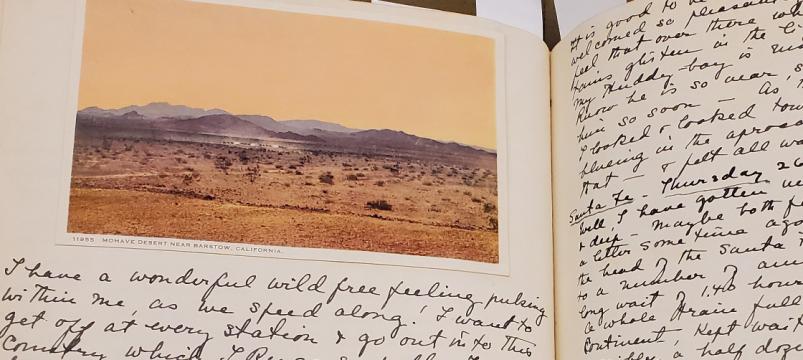 11955 MOHAVE DESERT NEAR BARSTOW, CALIFORNIA.
I have a wonderful wild free feeling pulsing
within me, as we speed along! I want to
get off at every station & go out in to this
country which I
It is good to be
welcomed so pleasant
feel that over there wh
tains glisten in the
my Huddy boy is
Know he is so near,
him so soon – As,
I looked & looked
blueing in the
that – & felt all
Santa Fe – Thursday 26
Well, I have gotten
& deep – maybe both
a letter some time ago
the head of the Santa
to a number of
long wait of 1.40 hours
a whole train full
Continent, Kept
half